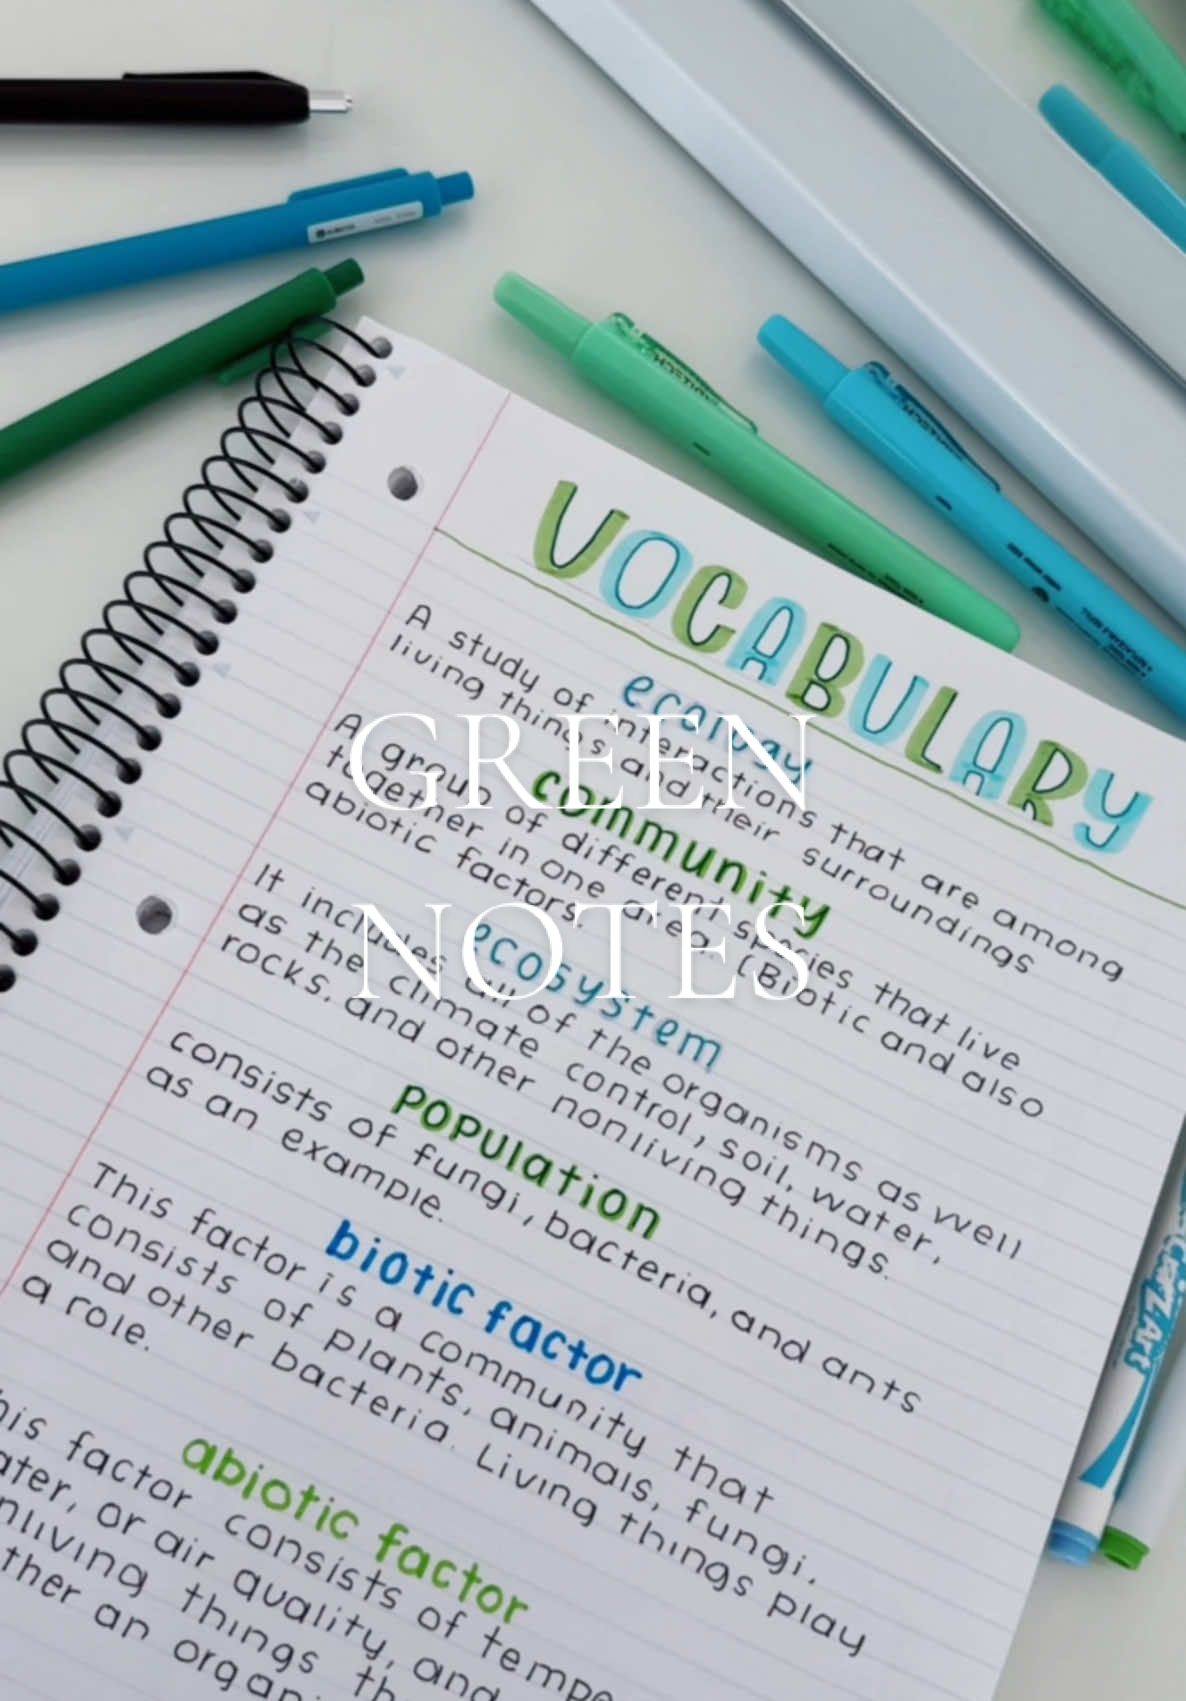 VOCABULARY
ecology
A study of interactions that are among
living things and their surroundings
community
A group of different species that live
together in one area. (Biotic and also
abiotic factors.
ecosystem
It includes all of the organisms as well
as the climate control, soil, water,
rocks, and other nonliving things.
population
consists of fungi, bacteria, and ants
as an example.
biotic factor
This factor is a community that
consists of plants, animals, fungi,
and other bacteria. Living things play
a role.
abiotic factor
his factor consists of tempe
ater, or air quality, and
nliving things th
ther an organi
GREEN
NOTES